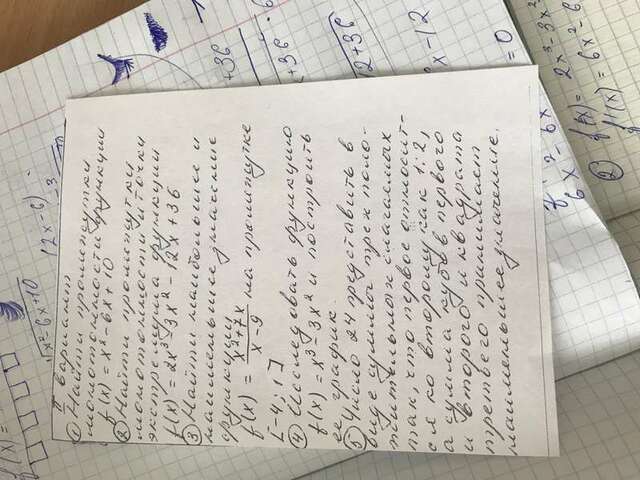 1 вариант
① Найти промежутки
монотонности функции
f(x) = x² - 6x + 10
② Найти промежутки
монотонности и точки
экстремума функции
f(x) = 2x³ - 3x² - 12x + 36
③ Найти наибольшее и
наименьшее значение
функции
f(x) = x² + 7x / x - 9 на промежутке
[-4; 1]
④ Исследовать функцию
f(x) = x³ - 3x² и построить
её график.
⑤ Число 24 представить в
виде суммы трех поло-
жительных слагаемых
так, что первое относит-
ся ко второму как 1:2,
а сумма кубов первого
и второго и квадрата
третьего принимает
наименьшее значение.
x² - 6x + 10
(2x - 6)
+36
x + 36
12 + 36
x - 12
= 0
6x² - 6x
② f(x) = 2x³ - 3x²
f'(x) = 6x² - 6
f(x) =